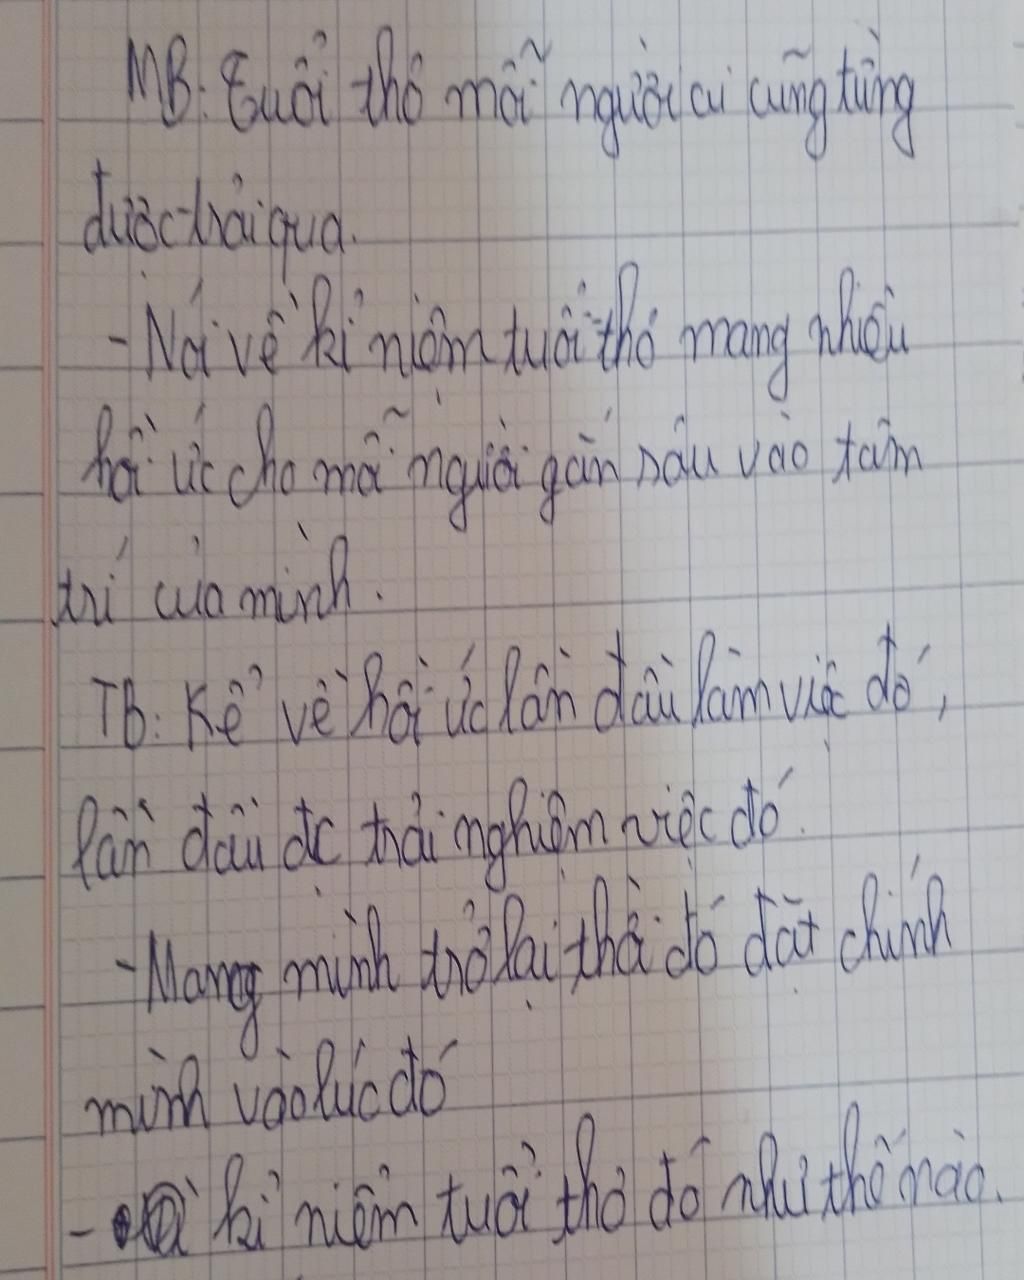 MB: Tuổi thơ mỗi người ai cũng từng
được trải qua.
- Nói về kỉ niệm tuổi thơ mang nhiều
hồi ức cho mỗi người gắn sâu vào tâm
trí của mình.
TB: Kể về hồi ức lần đầu làm việc đó,
lần đầu đc trải nghiệm việc đó.
- Mang mình trở lại thời đó đặt chính
mình vào lúc đó
- kỉ niệm tuổi thơ đó như thế nào.